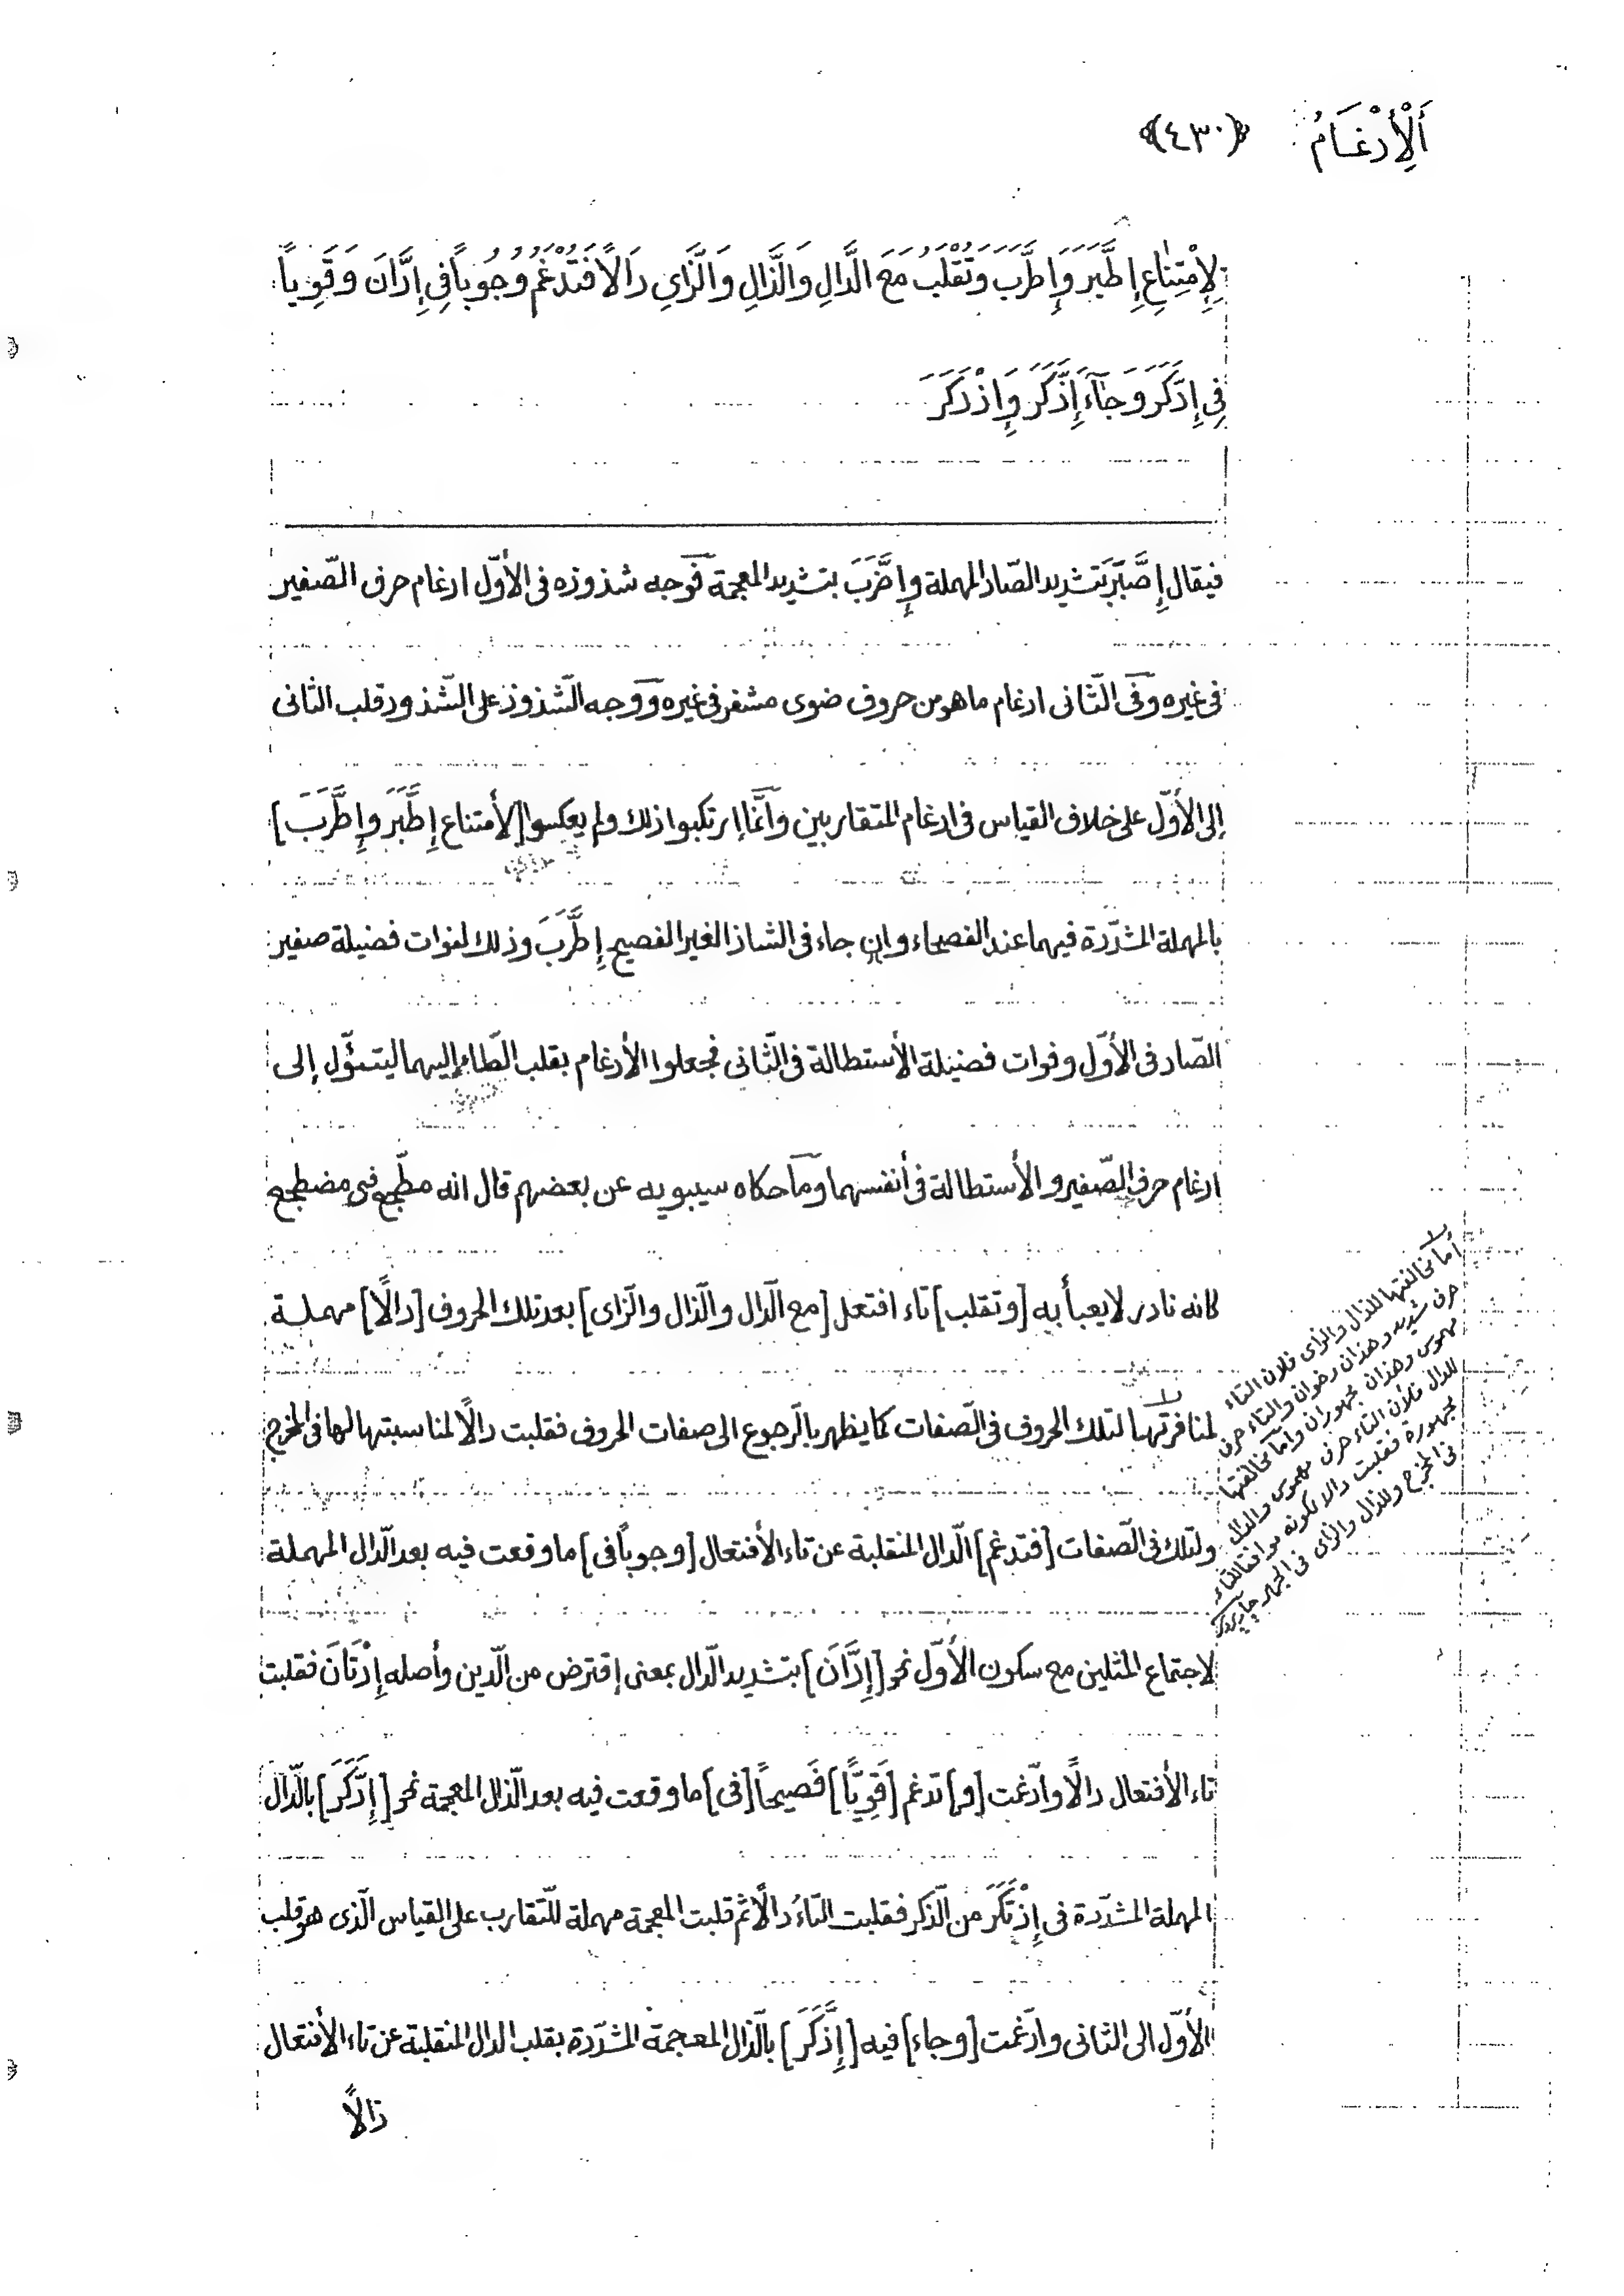 اَلْأِدْغَامُ ﴿٤٣٠﴾
لِإِمْتِنَاعِ إِطَّبَرَ وَإِطَّرَبَ وَتُقْلَبُ مَعَ الدَّالِ وَالذَّالِ وَالزَّايِ دَالًا فَتُدْغَمُ وُجُوبًا فِي إِدَّانَ وَقَوِيًّا
فِي إِدَّكَرَ وَجَآءَ إِذَّكَرَ وَإِذْدَكَرَ
فيقال إِصَّبَرَ بتشديد الصّاد المهملة وإِضَّرَبَ بتشديد المعجمة فوجه شذوذه فى الأوّل ادغام حرف الصّفير
فى غيره وفى الثّانى ادغام ما هو من حروف ضوى مشفر فى غيره ووجه الشّذوذ على الشّذوذ قلب الثانى
إلى الأوّل على خلاف القياس فى ادغام المتقاربين وانّما إرتكبوا ذلك ولم يعكسوا [لأمتناع إِطَّبَرَ وإِطَّرَبَ]
بالمهملة المشدّدة فيهما عند الفصحاء وان جاء فى الشاذ الغير الفصيح إِطَّرَبَ وذلك لفوات فضيلة صفير
الصّاد فى الأوّل وفوات فضيلة الأستطالة فى الثّانى فجعلوا الأدغام بقلب الطّاء إليهما ليتئوّل إلى
ادغام حرف الصّفير والأستطالة فى أنفسهما وما حكاه سيبويه عن بعضهم قال انه مطّجع فى مضطجع
كانه نادر لا يعبأ به [وتقلب] تاء افتعل [مع الدّال والذّال والزّاى] بعد تلك الحروف [دالًا] مهملة
لمنافرتها لتلك الحروف فى الصّفات كما يظهر بالرّجوع الى صفات الحروف فقلبت دالًا لمناسبتها لها فى المخرج
ولتلك فى الصّفات [فتدغم] الدّال المنقلبة عن تاء الأفتعال [وجوبًا فى] ما وقعت فيه بعد الدّال المهملة
لاجتماع المثلين مع سكون الأوّل نحو [إِدَّانَ] بتشديد الدّال بمعنى إقترض من الدّين وأصله إِدْتَانَ فقلبت
تاء الأفتعال دالًا وادّغمت [و] تدغم [قَوِيًّا] فَصيحًا [فى] ما وقعت فيه بعد الذّال المعجمة نحو [إِدَّكَرَ] بالدّال
المهملة المشدّدة فى إِذْتَكَرَ من الذّكر فقلبت التّاءُ دالًا ثم قلبت المعجمة مهملة للتّقارب على القياس الّذى هو قلب
الأوّل الى الثانى وادّغمت [وجاء] فيه [إِذَّكَرَ] بالذّال المعجمة المشدّدة بقلب الدال المنقلبة عن تاء الأفتعال
ذالًا
أما مخالفتها للذال والزاى فلان التاء
حرف شديد وهذان رخوان والتاء حرف
مهموس وهذان مجهوران واما مخالفتها
للدال فلأن التاء حرف مهموس والدال
مجهورة فقلبت دالا لكونه موافقا للتاء
فى المخرج وللذال والزاى فى الجهر